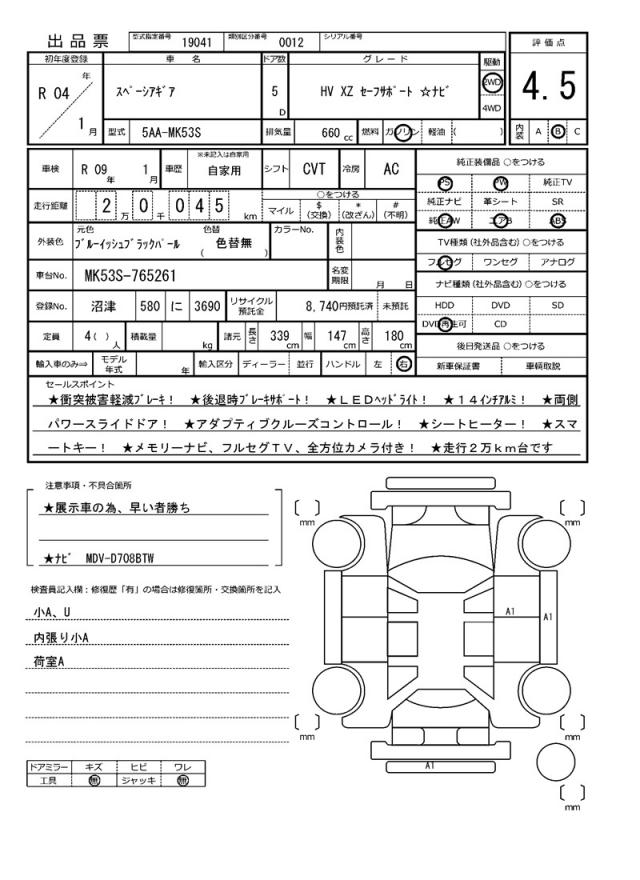 出品票 型式指定番号 19041 類別区分番号 0012 シリアル番号
初年度登録 車名 ドア数 グレード 駆動 評価点
R 04 年 1 月 スペーシアギア 5 D HV XZ セーフサポート ☆ナビ 2WD 4WD 4.5
型式 5AA-MK53S 排気量 660 cc 燃料 ガソリン 軽油 ( ) 内装 A B C
車検 R 09 年 1 月 車歴 ※未記入は自家用 自家用 シフト CVT 冷房 AC 純正装備品 ○をつける
PS PW 純正TV
走行距離 2 万 0 千 0 4 5 km ○をつける マイル $(交換) *(改ざん) #(不明) 純正ナビ 革シート SR
純正AW エアB ABS
外装色 元色 ブルーイッシュブラックパール 色替 ( 色替無 ) カラーNo. 内装色 TV種類 (社外品含む) ○をつける
フルセグ ワンセグ アナログ
車台No. MK53S-765261 名変期限 月 日 ナビ種類 (社外品含む) ○をつける
登録No. 沼津 580 に 3690 リサイクル預託金 8,740円預託済 未預託 HDD DVD SD
DVD再生可 CD
定員 4( ) 人 積載量 kg 諸元 長さ 339 cm 幅 147 cm 高さ 180 cm 後日発送品 ○をつける
輸入車のみ⇒ モデル年式 年 輸入区分 ディーラー 並行 ハンドル 左 右 新車保証書 車輌取説
セールスポイント
★衝突被害軽減ブレーキ! ★後退時ブレーキサポート! ★LEDヘッドライト! ★14インチアルミ! ★両側
パワースライドドア! ★アダプティブクルーズコントロール! ★シートヒーター! ★スマ
ートキー! ★メモリーナビ、フルセグTV、全方位カメラ付き! ★走行2万km台です
注意事項・不具合箇所
★展示車の為、早い者勝ち
★ナビ MDV-D708BTW
検査員記入欄:修復歴「有」の場合は修復箇所・交換箇所を記入
小A、U
内張り小A
荷室A
ドアミラー キズ ヒビ ワレ
工具 無 ジャッキ 無
[ ] mm
[ ] mm
A1
A1
[ ] mm
[ ] mm
A1
[ ] mm